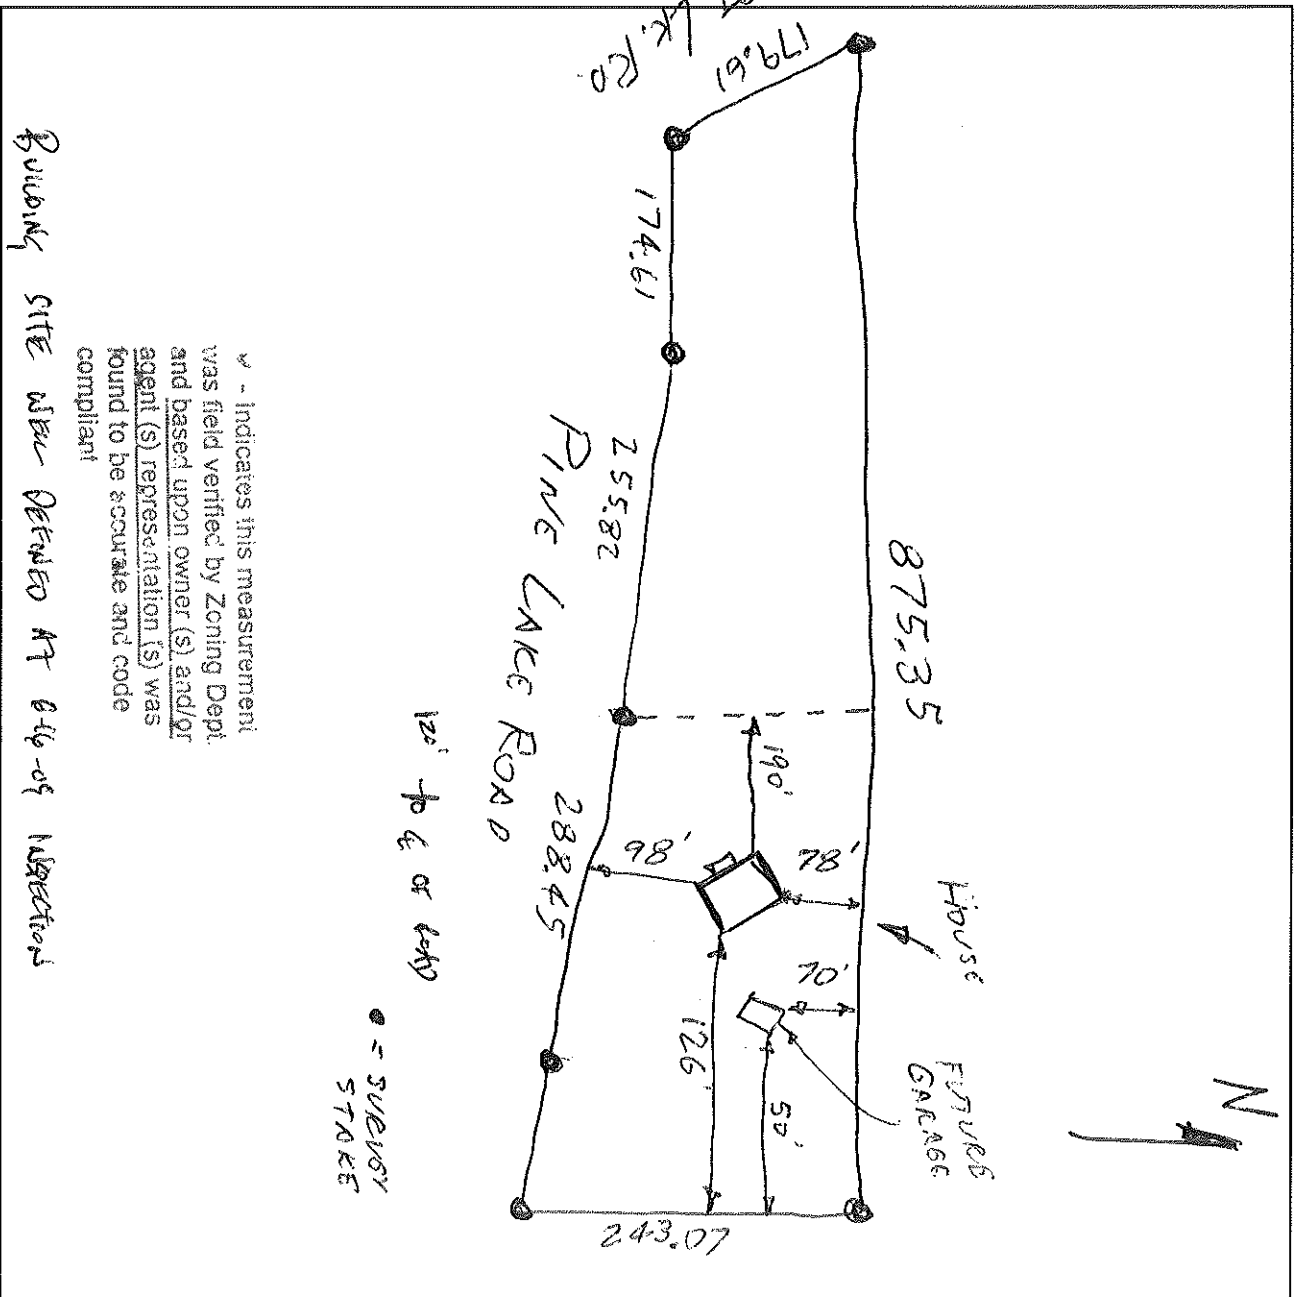 N
House
FUTURE
GARAGE
875.35
179.61
LK. RD.
174.61
255.82
PINE LAKE ROAD
288.45
190'
98'
78'
70'
126'
50'
243.07
120' to ℄ of
● = SURVEY
STAKE
- indicates this measurement
was field verified by Zoning Dept.
and based upon owner (s) and/or
agent (s) representation (s) was
found to be accurate and code
compliant
BUILDING SITE WELL DEFINED AT INSPECTION